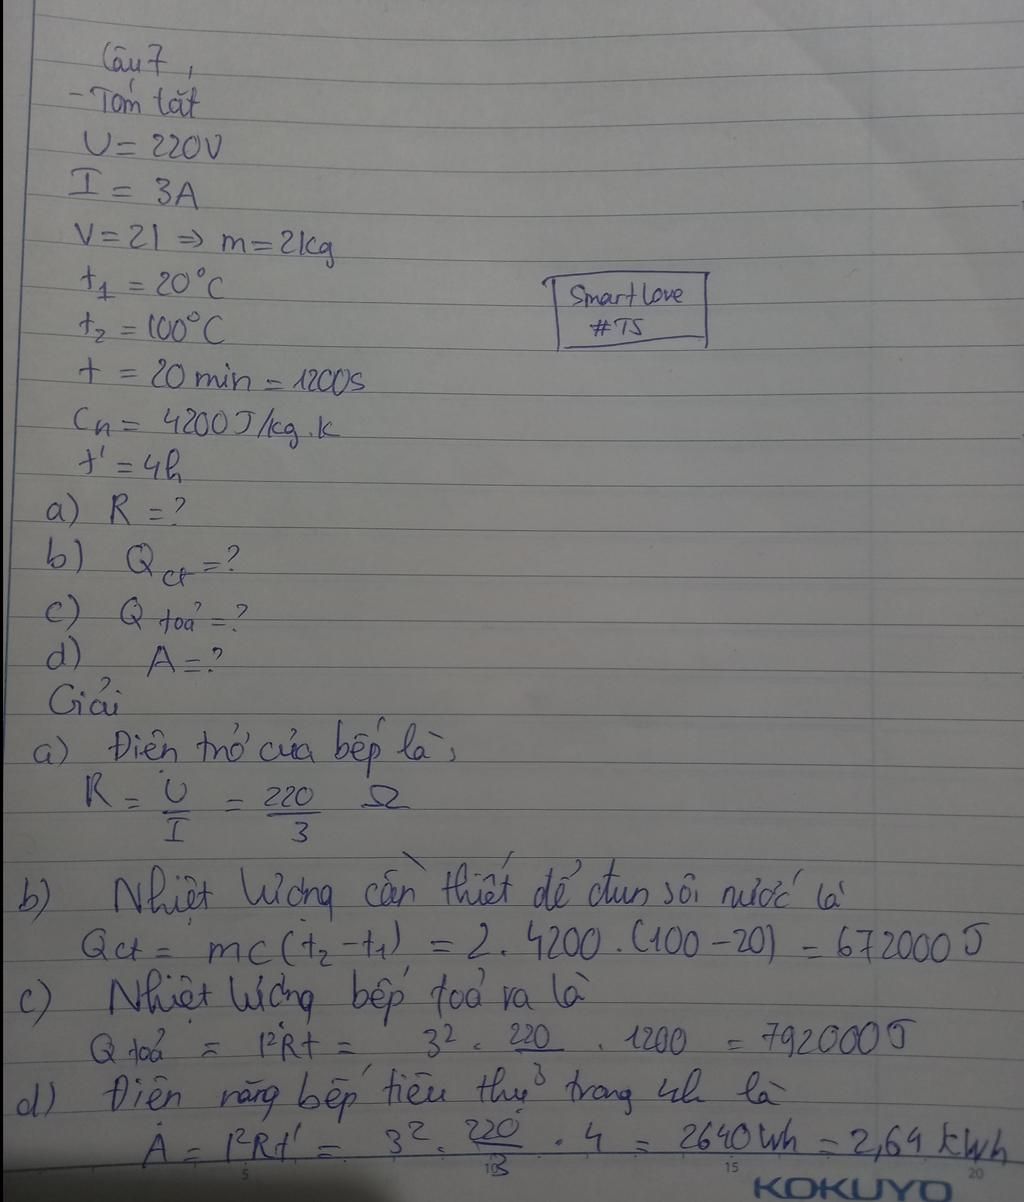 Câu 7,
- Tóm tắt
U = 220V
I = 3A
V = 2l => m = 2kg
t1 = 20°C
Smart Love
#TS
t2 = 100°C
t = 20 min = 1200s
Cn = 4200J/kg.k
t' = 4h
a) R = ?
b) Qct = ?
c) Q toả = ?
d) A = ?
Giải
a) Điện trở của bếp là,
R = U/I = 220/3 Ω
b) Nhiệt lượng cần thiết để đun sôi nước là
Qct = mc(t2 - t1) = 2.4200.(100 - 20) = 672000J
c) Nhiệt lượng bếp toả ra là
Q toả = I²Rt = 3² . 220/3 . 1200 = 792000J
d) Điện năng bếp tiêu thụ trong 4h là
A = I²Rt' = 3² . 220/3 . 4 = 2640Wh = 2,64 kWh
5 10 15 20
KOKUYO